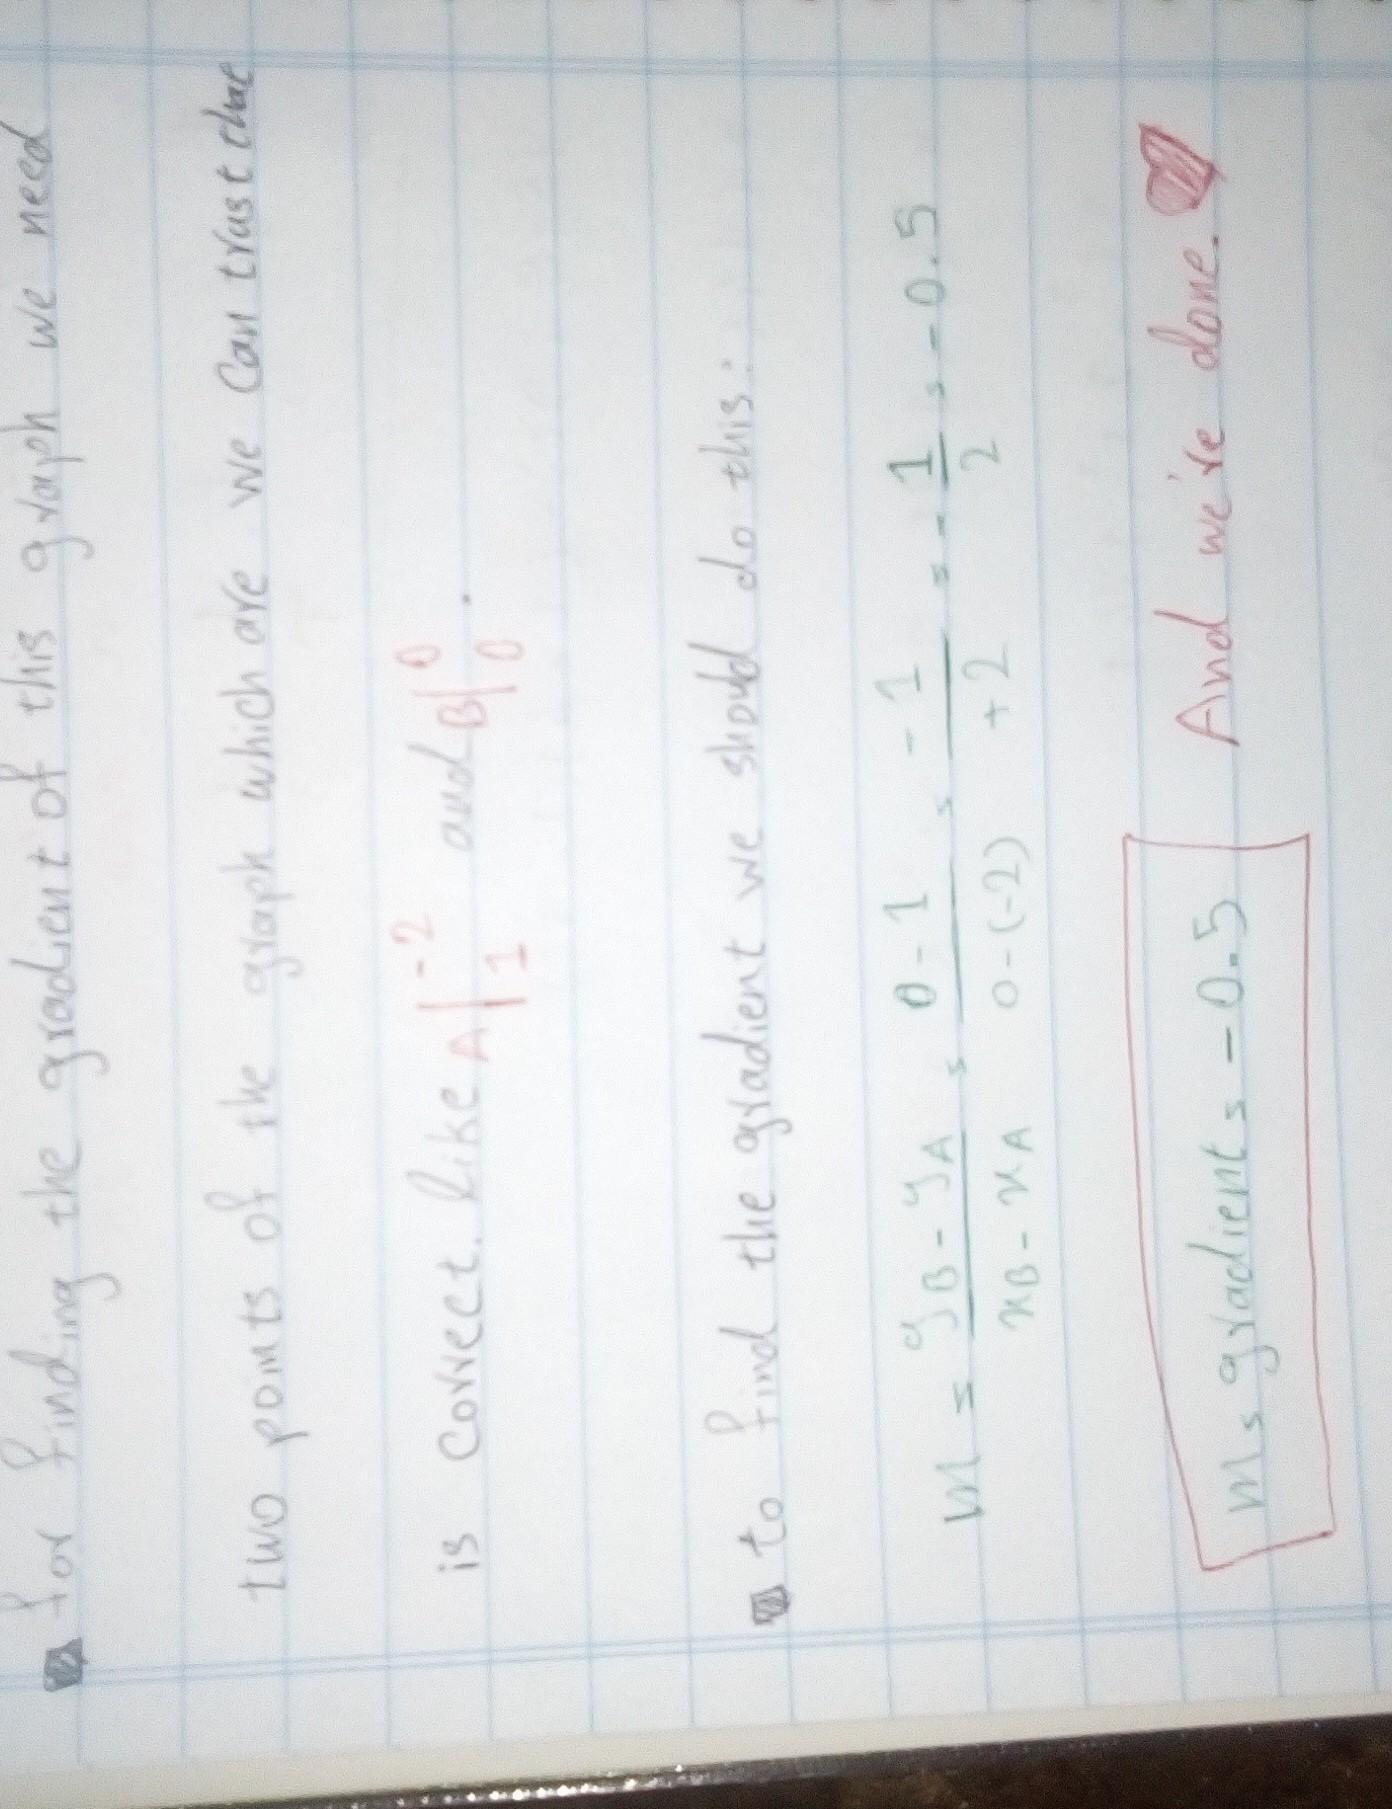 for finding the gradient of this graph we need
two points of the graph which are we can trust that
is correct. like A|-2 1 and B|0 0.
to find the gradient we should do this:
m = yB - yA / xB - xA = 0 - 1 / 0 - (-2) = -1 / +2 = - 1/2 = -0.5
m = gradient = -0.5 And we're done.